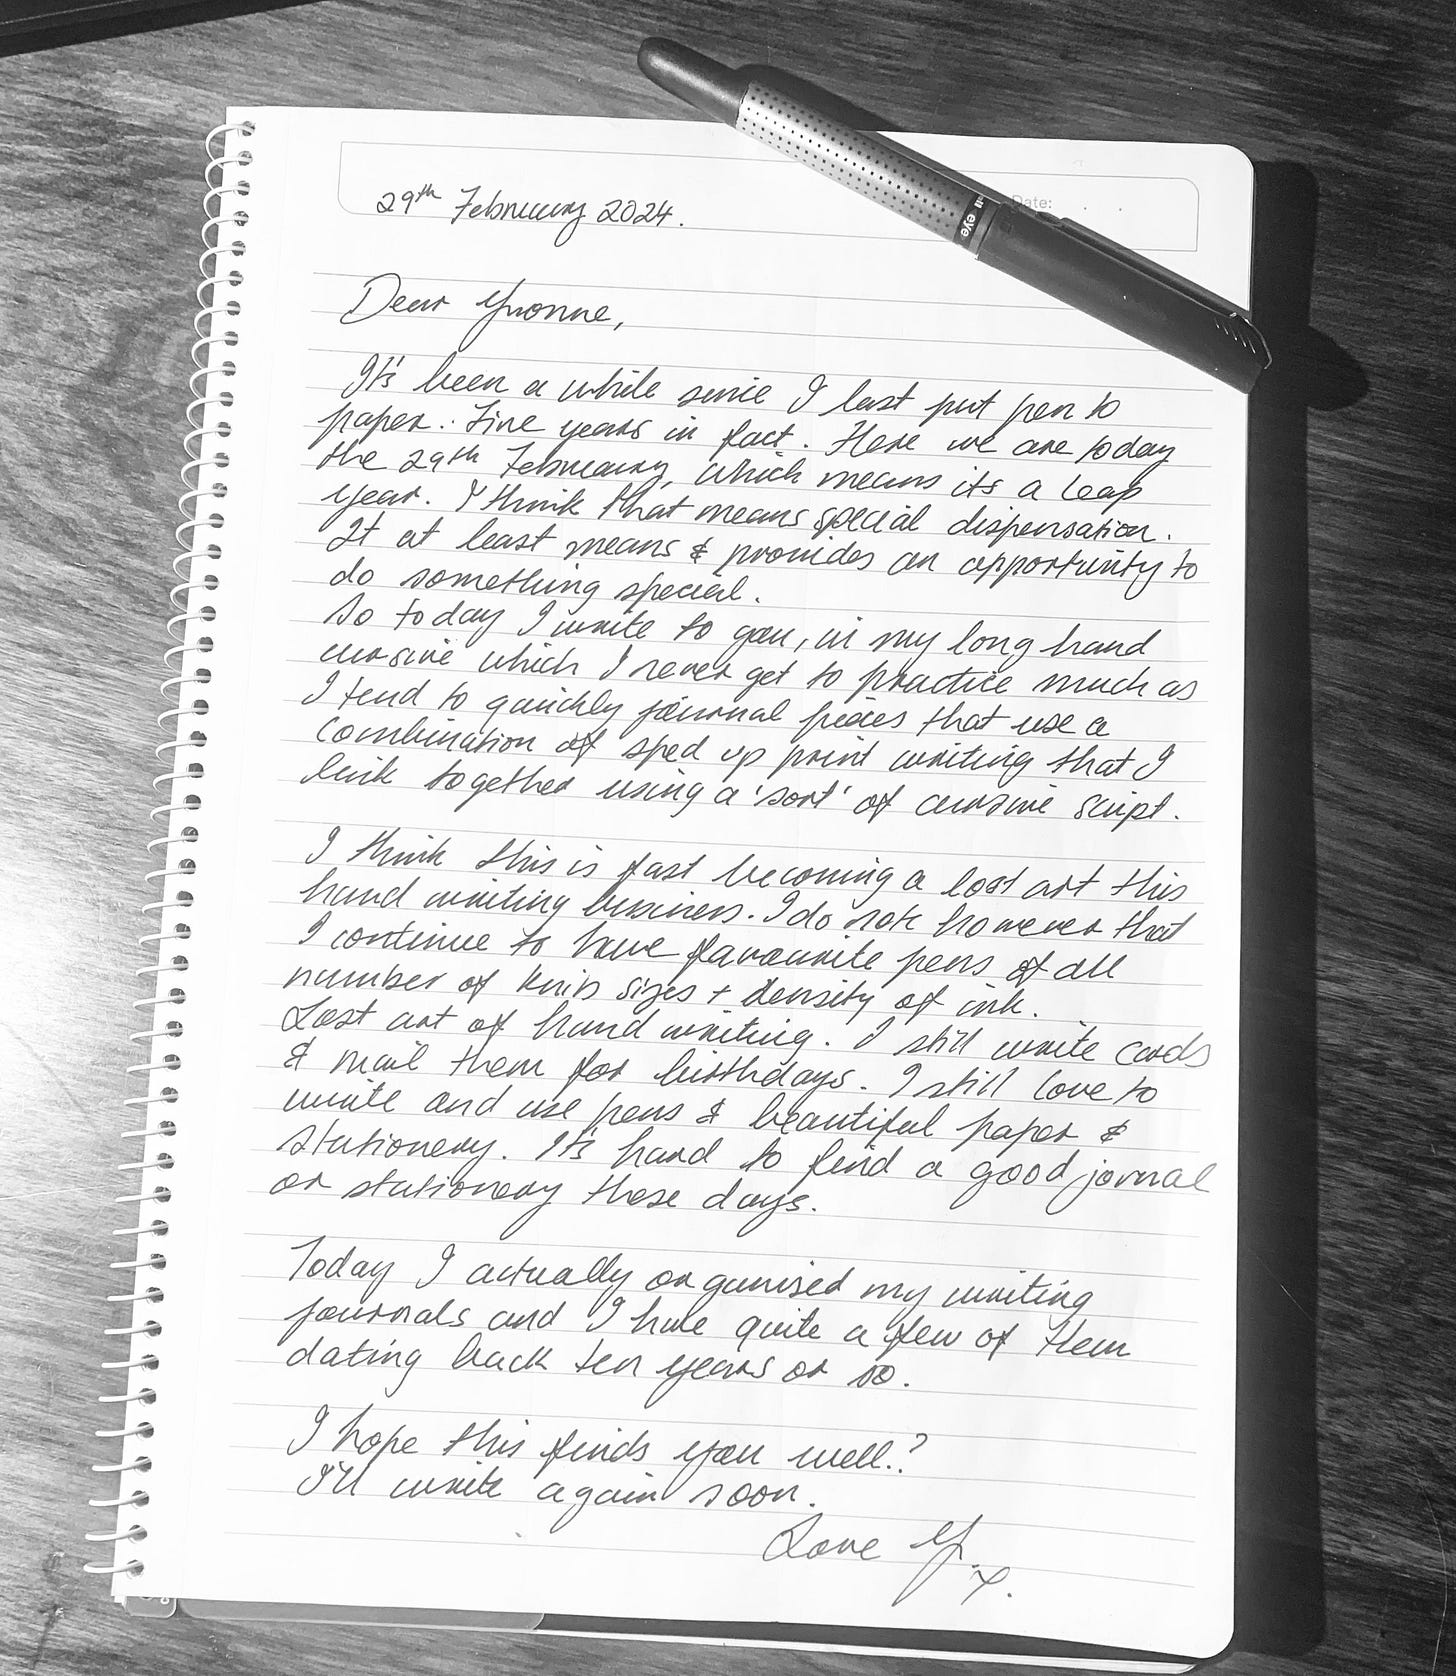 29th February 2024.
Date:
ll eye
Dear Yvonne,
It's been a while since I last put pen to
paper.. Five years in fact. Here we are today
the 29th February, which means its a leap
year. I think that means special dispensation.
It at least means & provides an opportunity to
do something special.
So today I write to you, in my long hand
cursive which I never get to practice much as
I tend to quickly journal pieces that use a
combination of sped up print writing that I
link together using a 'sort' of cursive script.
I think this is fast becoming a lost art this
hand writing business. I do note however that
I continue to have flavourite pens of all
number of knib sizes + density of ink.
Lost art of hand writing. I still write cards
& mail them for birthdays. I still love to
write and use pens & beautiful paper &
stationery. It's hard to find a good journal
or stationery these days.
Today I actually organised my writing
journals and I have quite a few of them
dating back ten years or so.
I hope this finds you well.?
I'll write again soon.
Love Y.
x.